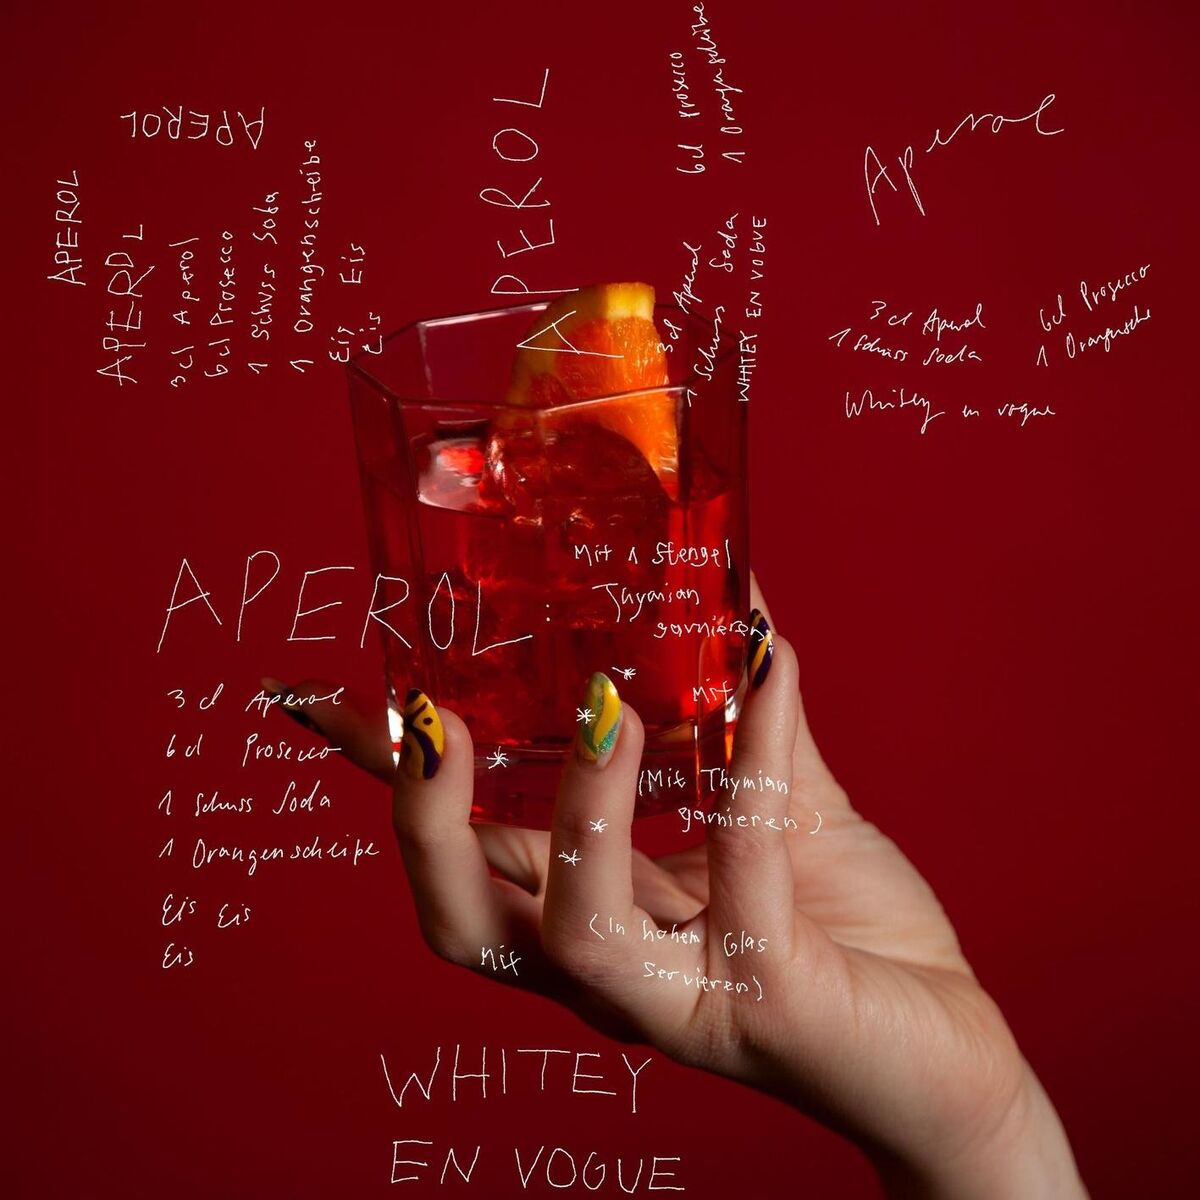 APEROL
APEROL
APEROL
3 cl Aperol
6 cl Prosecco
1 Schuss Soda
1 Orangenscheibe
Eis Eis
Eis
APEROL
6cl prosecco
1 Orangenscheibe
3 cl Aperol
1 Schuss Soda
WHITEY EN VOGUE
Aperol
3 cl Aperol
1 Schuss Soda
6cl Prosecco
1
Whitey en vogue
APEROL:
3 cl Aperol
6 cl Prosecco
1 Schuss Soda
1 Orangenscheipe
Eis Eis
Eis
Mit 1 Stengel
Thymian
garnieren
*
Mit
*
*
(Mit Thymian
garnieren)
*
*
(In hohem Glas
servieren)
Mit
WHITEY
EN VOGUE